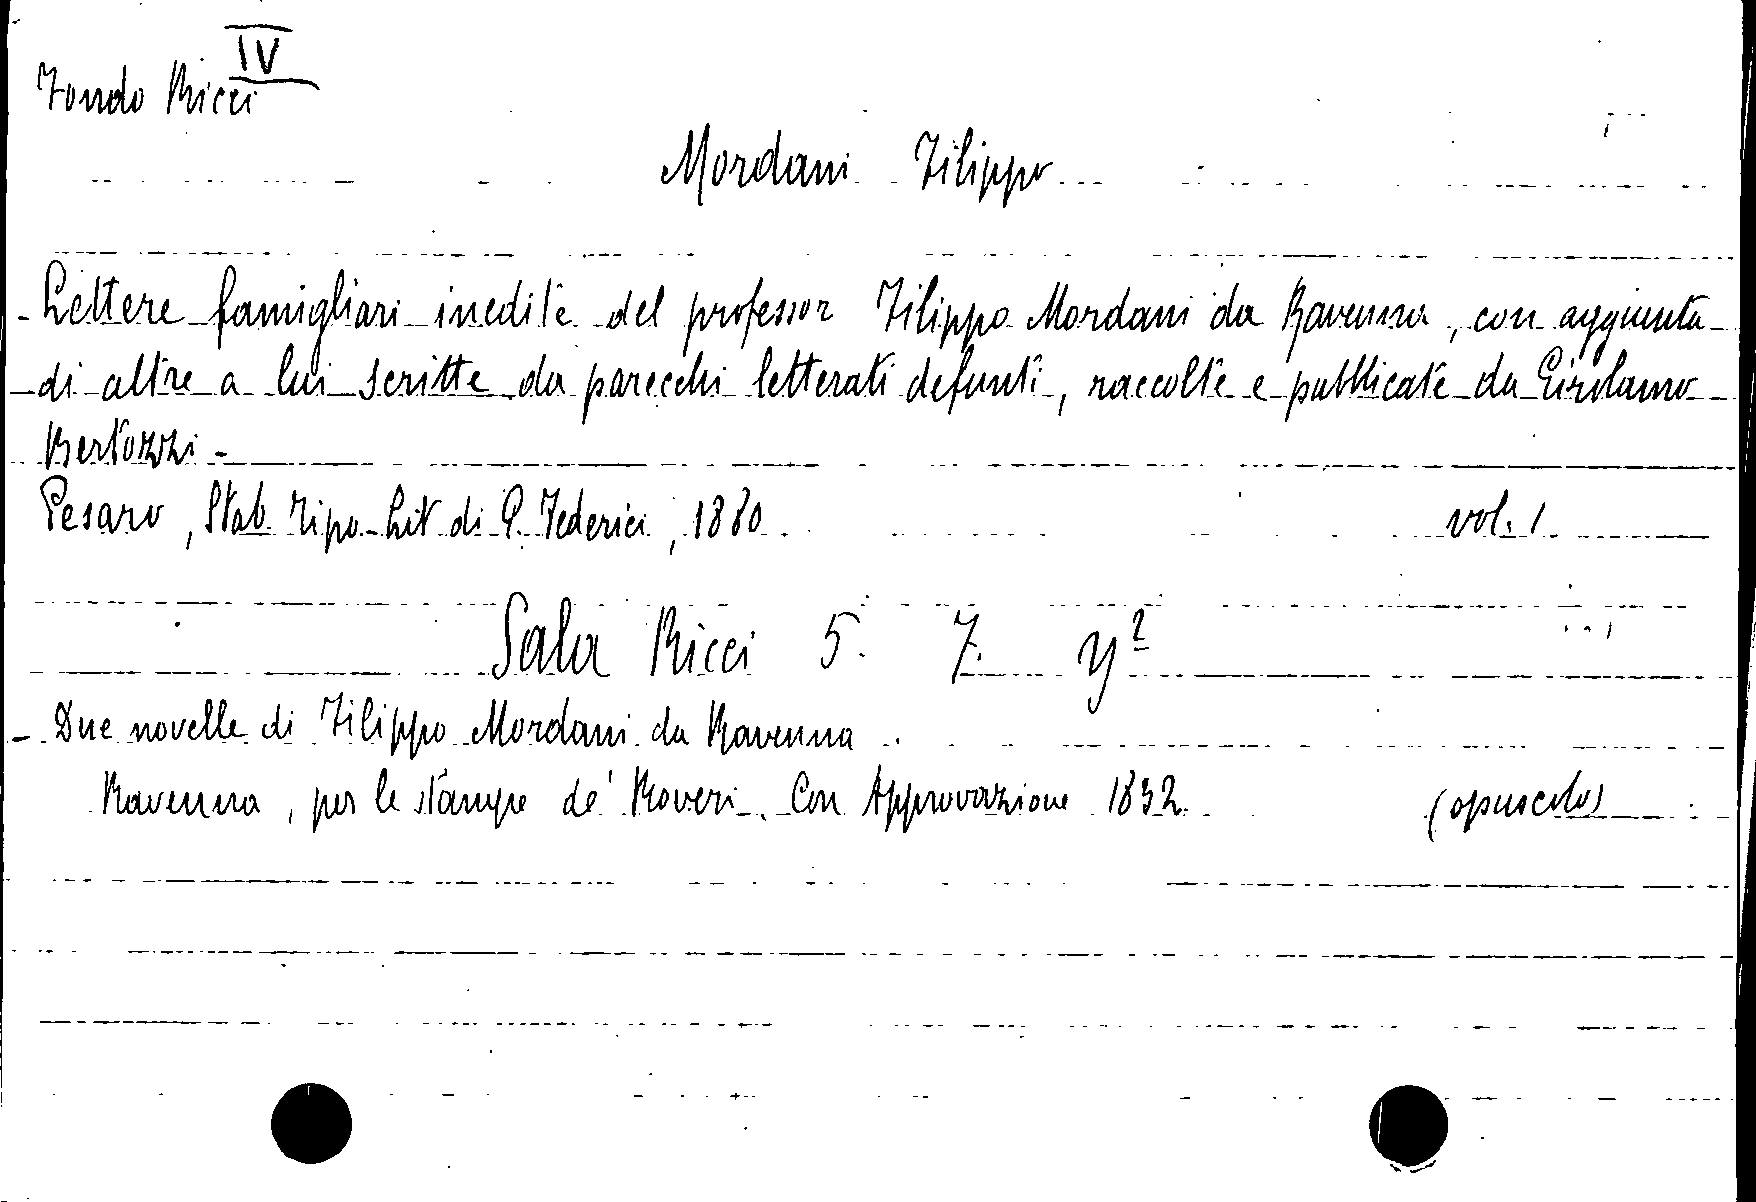 IV
Fondo Ricci
Mordani Filippo
- Lettere famigliari inedite del professor Filippo Mordani da Ravenna, con aggiunta
di altre a lui scritte da parecchi letterati defunti, raccolte e pubblicate da Girolamo
Bertozzi -
Pesaro, Stab. Tipo-Lit di G. Federici, 1880 vol. 1
Sala Ricci 5. 7. y²
- Due novelle di Filippo Mordani da Ravenna
Ravenna, per le stampe de' Roveri. Con Approvazione 1832 (opuscolo)